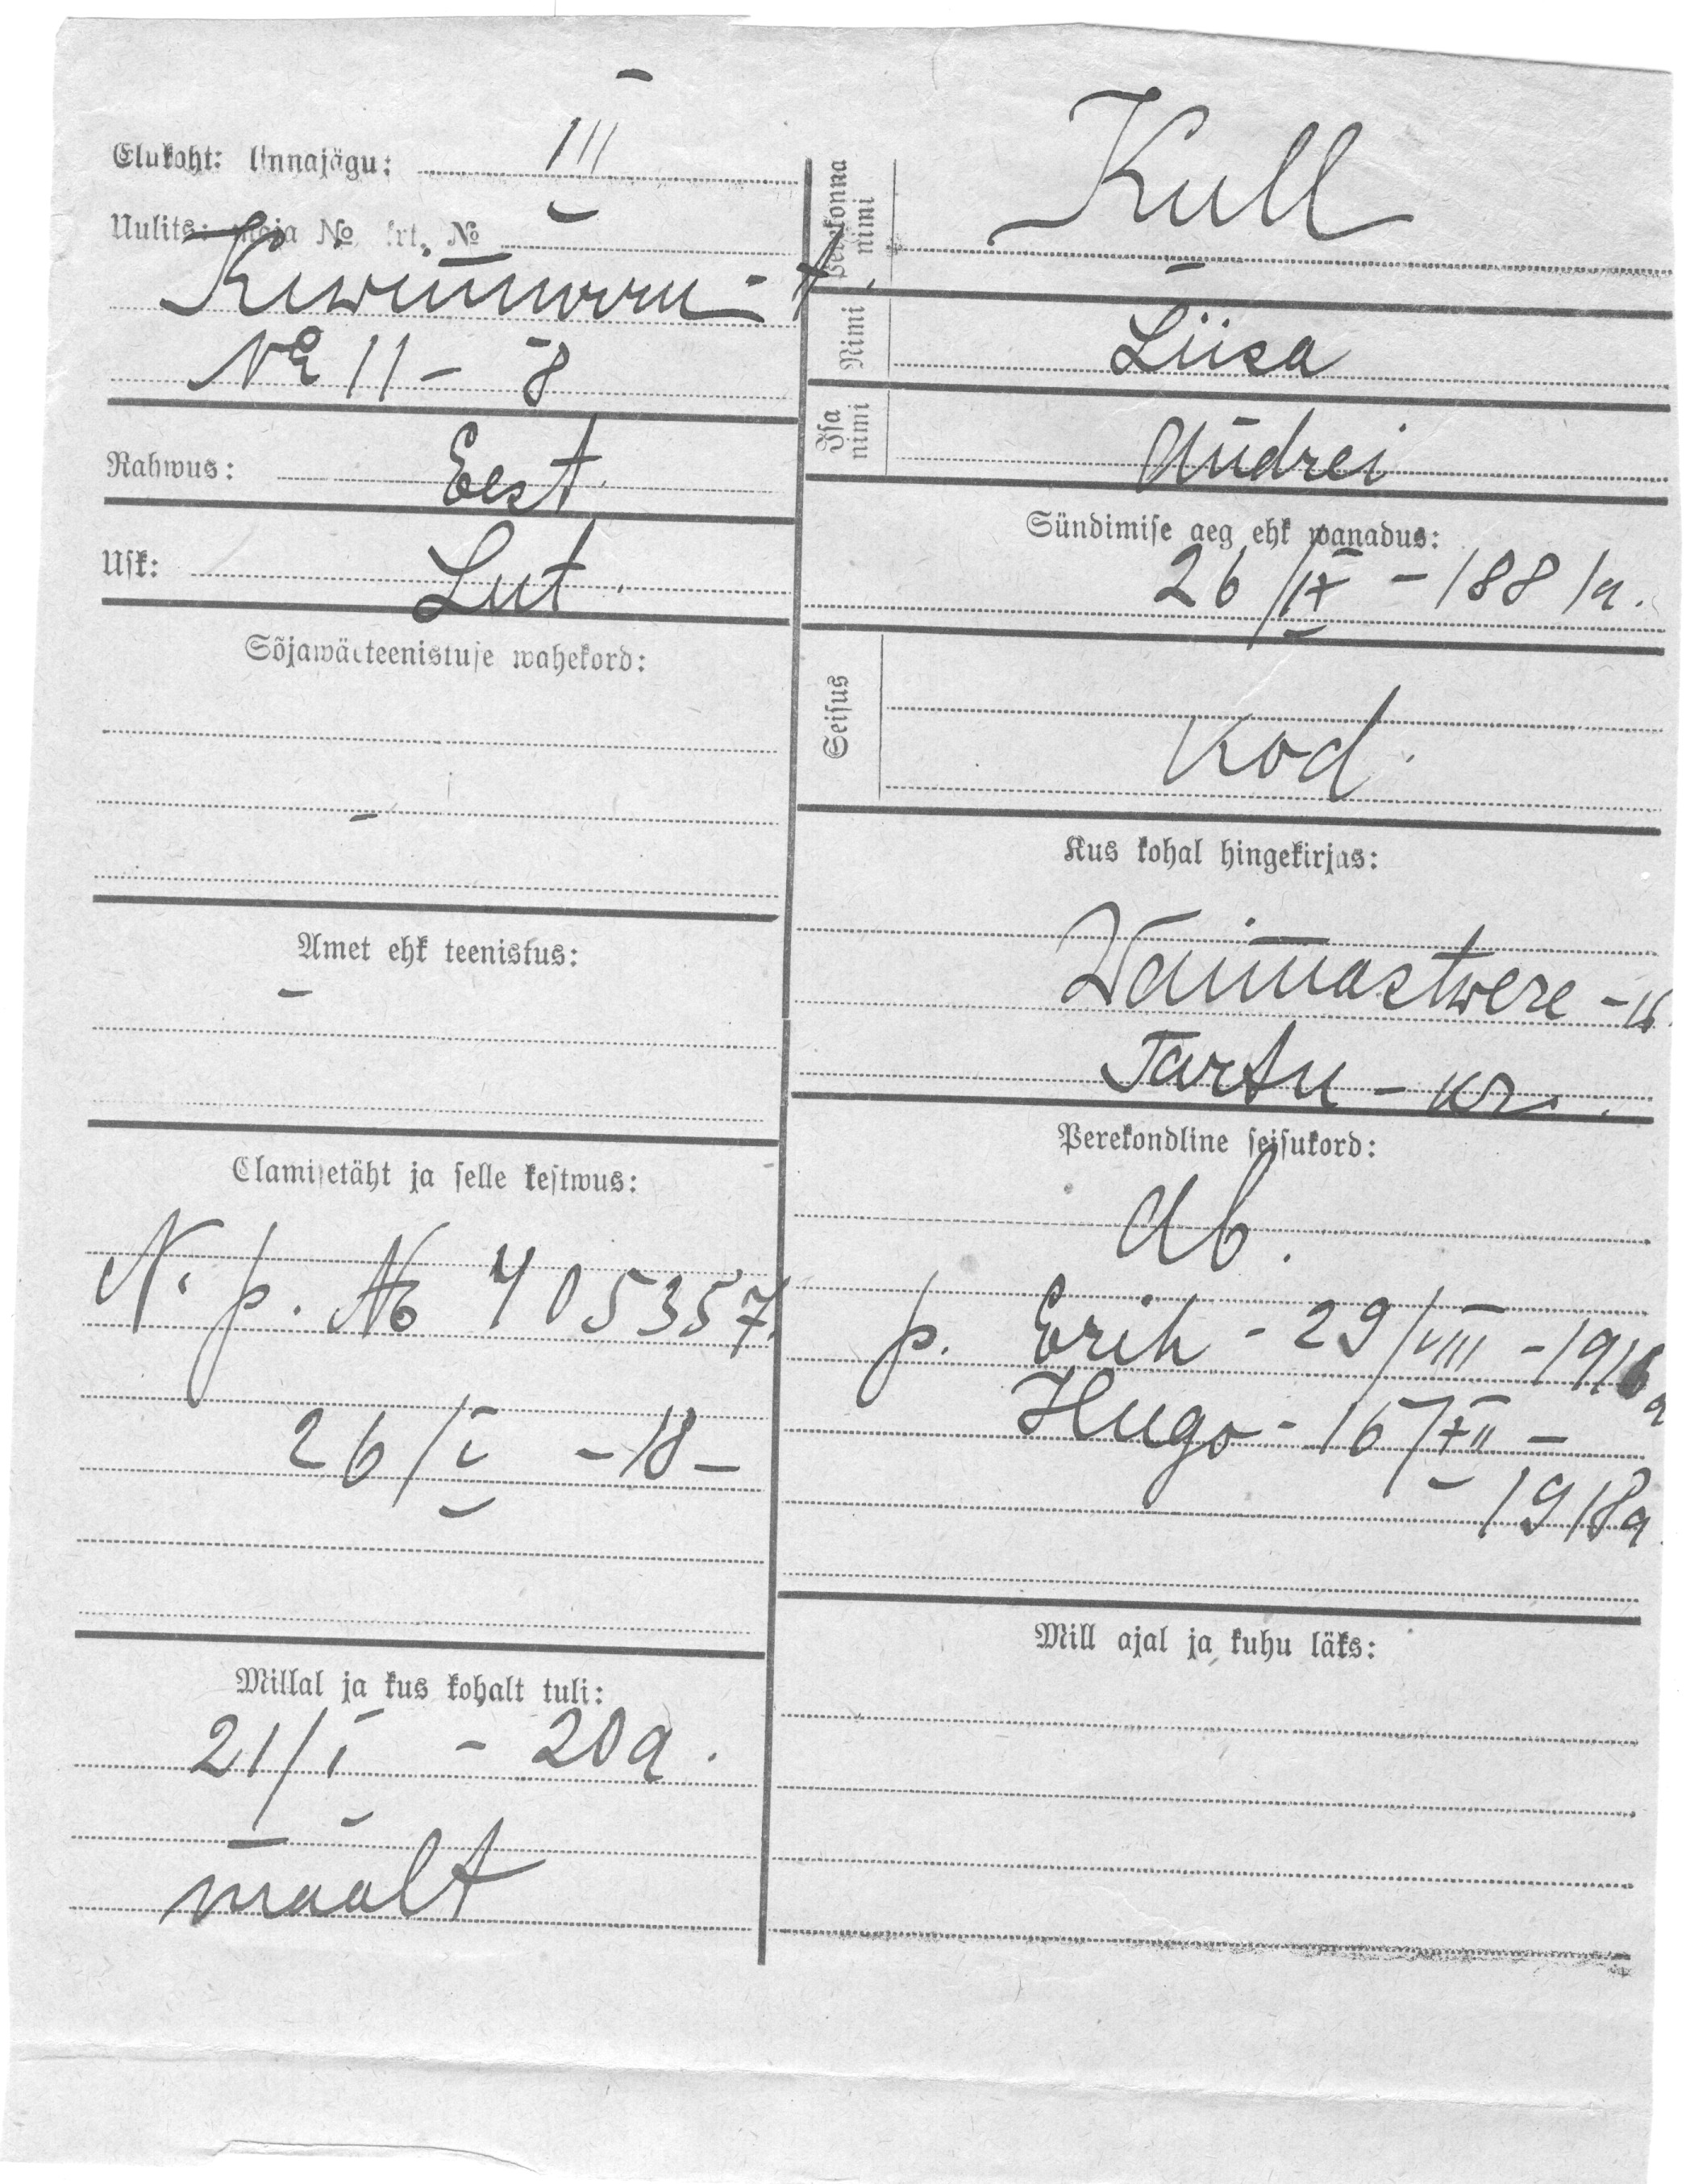 Elukoht: linnajägu: III
Uulits: maja № krt. №
Kiwimurru - t.
№ 11 - 8
Rahwus: Eest.
Usk: Lut.
Sõjawäeteenistuse wahekord:
-
Amet ehk teenistus:
-
Elamisetäht ja selle kestwus:
N. p. № 405357.
26/I - 18 -
Millal ja kus kohalt tuli:
21/I - 20 a.
maalt
Perekonna nimi
Kull
Nimi
Liisa
Isa nimi
Andrei
Sündimise aeg ehk wanadus:
26/IX - 1881 a.
Seisus
Kod.
Kus kohal hingekirjas:
Waimastwere - w.
Tartu - kr.
Perekondline seisukord:
Ab.
p. Erih - 29/VIII - 1916 a
Hugo - 16/XII -
1918 a.
Mill ajal ja kuhu läks: